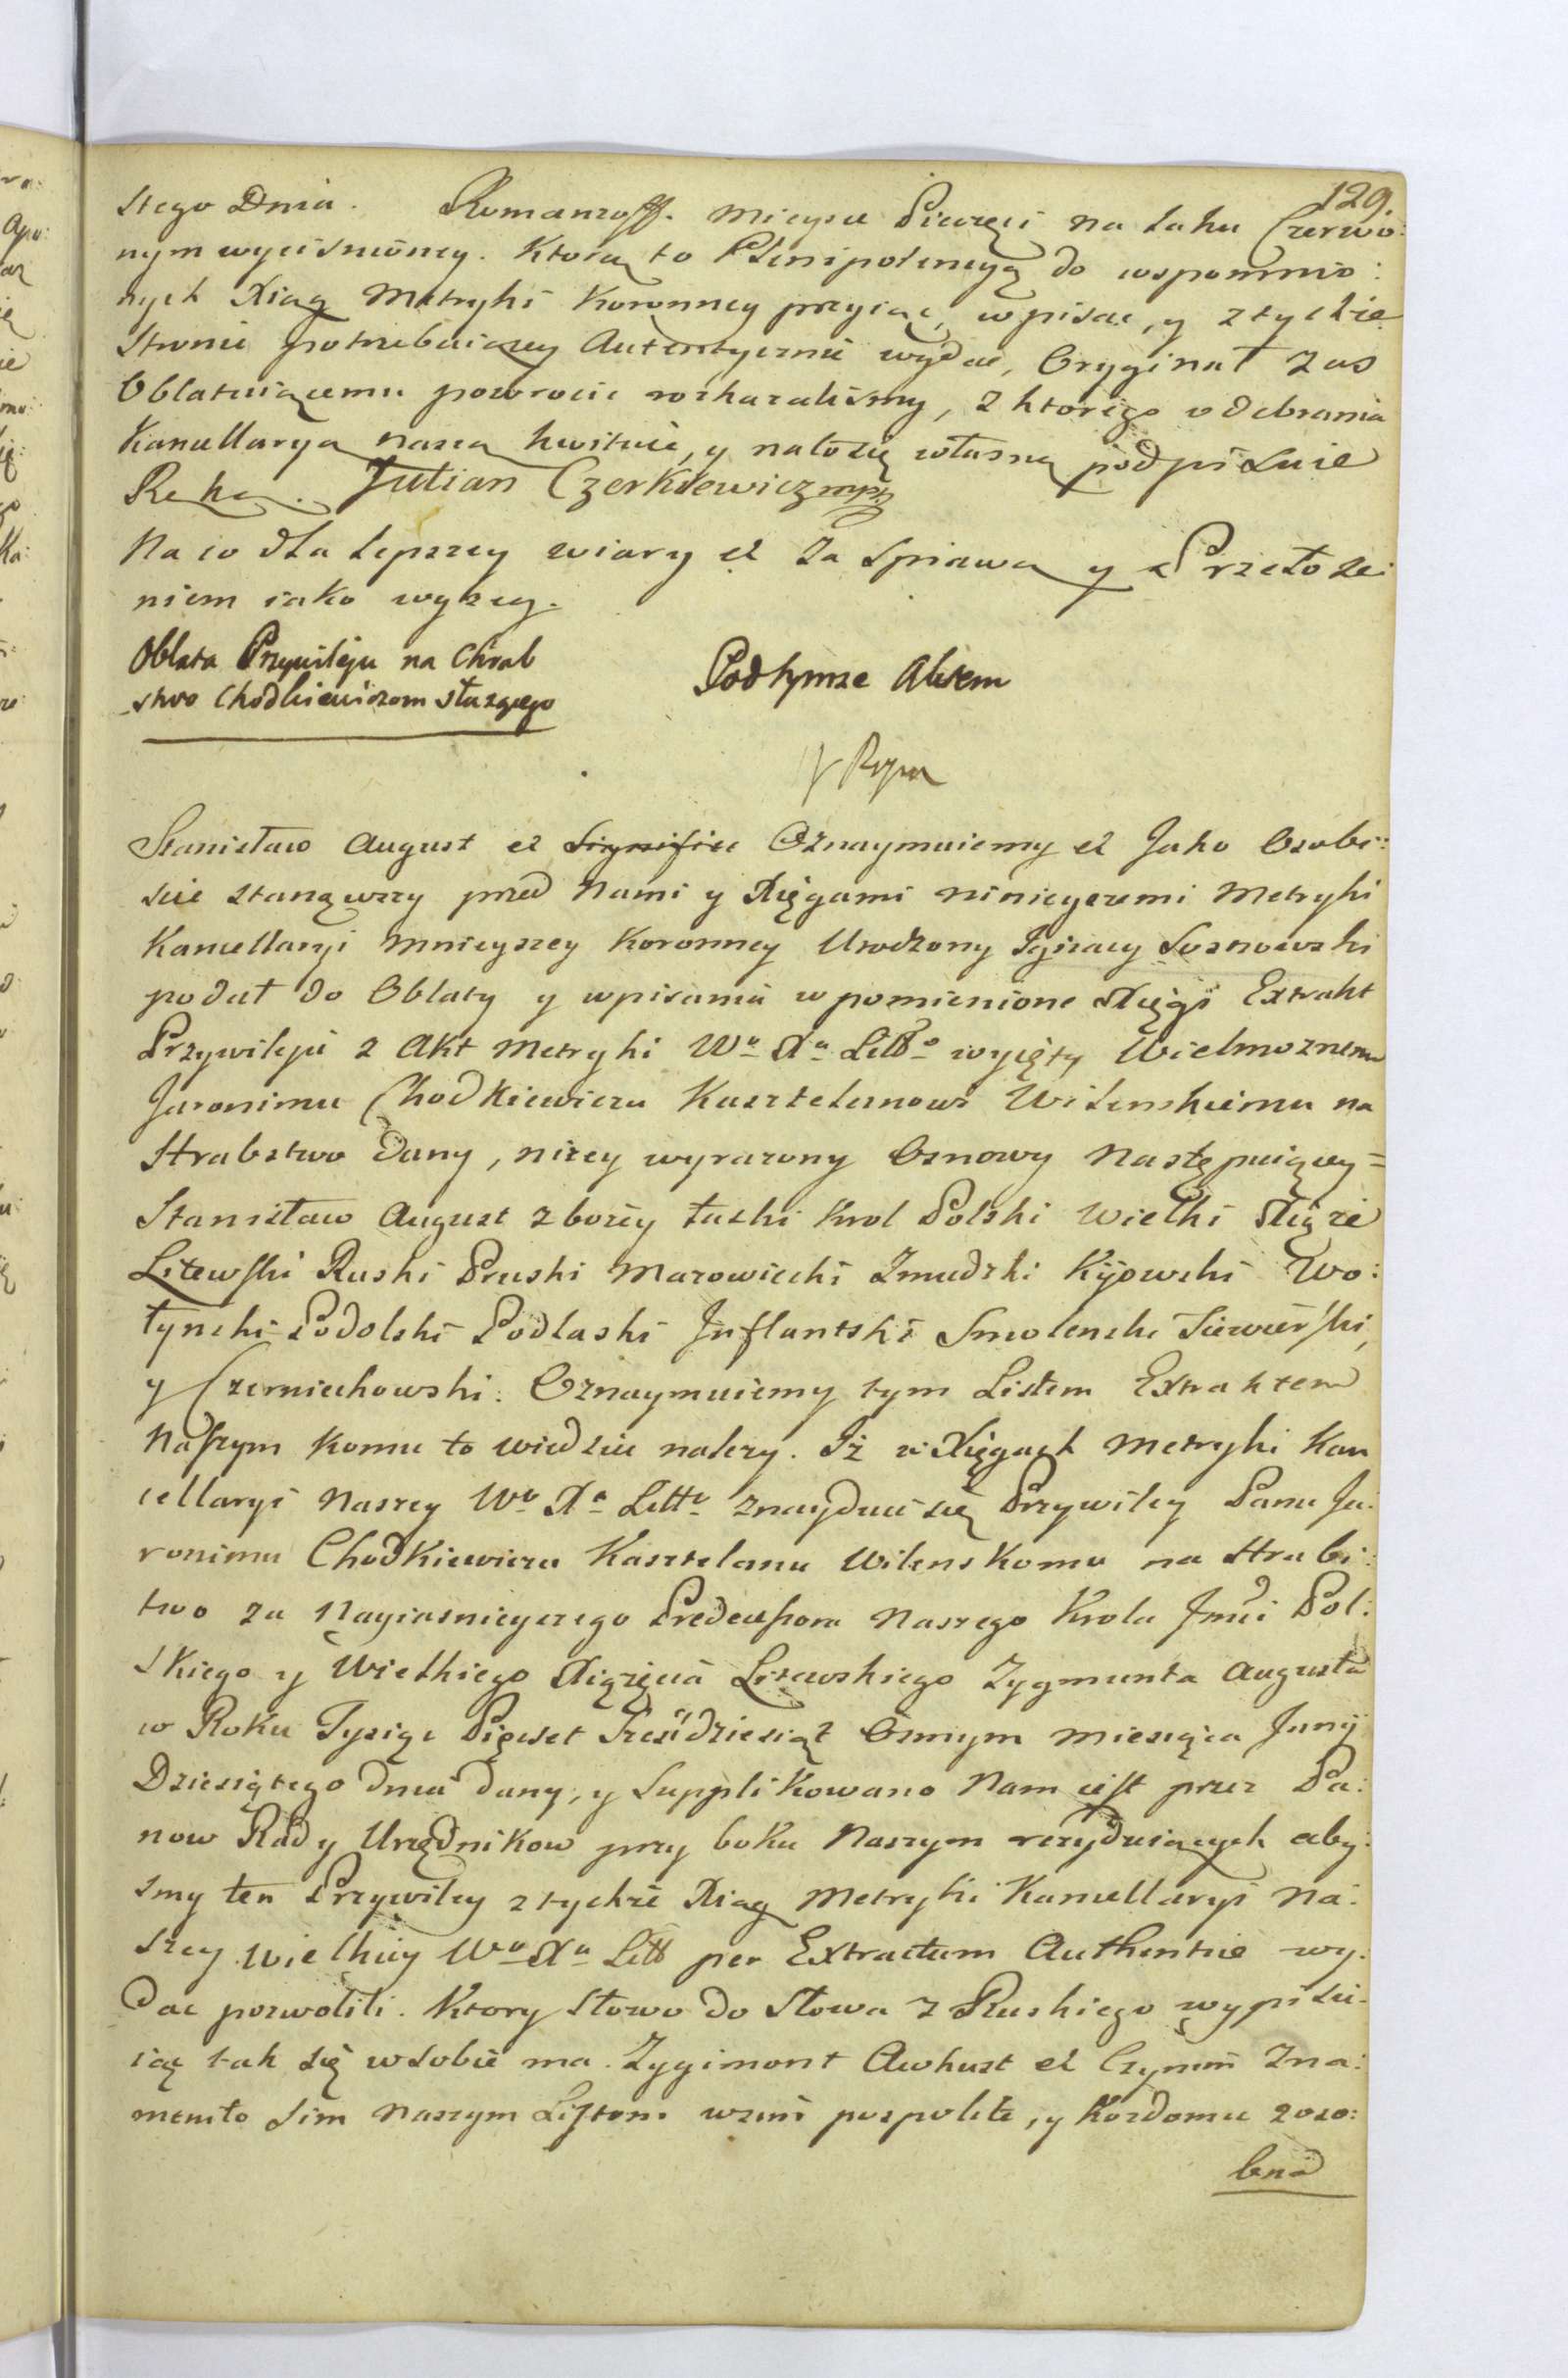 129.
stego Dnia. Romanzoff. Mieysce Pieczęci na Laku Czerwo:
nym wyciśnioney. Ktorą to Plenipotencyą do wspomnio:
nych Xiąg Metryki Koronney przyiąc, wpisac, y z tychże
Stronie potrzebuiącey Autentycznie wydac, Oryginał zas
Oblatuiącemu powrocic roskazalismy, z ktorego odebrania
Kancellarya naszą kwituie, y na to się własną podpisuie
Ręką. Julian Czerkiewicz mpp
Na co dla lepszey wiary et Za Sprawą y Przełoże:
niem iako wyżey.
Oblata Przywileju na Chrab
stwo Chodkiewiczom służącego
Podtymże Aktem
Stanisław August et Significe Oznaymuiemy et Jako Osobi:
scie stanąwszy przed Nami y Xięgami ninieyszemi Metryki
Kancellaryi Mnieyszey Koronney Urodzony Ignacy Sosnowski
podał do Oblaty y wpisania w pomienione Xięgi Extrakt
Przywileju z Akt Metryki Wo Xa Litto wyięty Wielmoznemu
Jaronimu Chodkiewiczu Kasztelanowi Wilenskiemu na
Hrabstwo Dany, niżey wyrazony Osnowy Następuiącey =
Stanisław August z bożey łaski Krol Polski Wielki Xiąże
Litewski Ruski Pruski Mazowiecki Zmudzki Kijowski Wo:
łynski Podolski Podlaski Inflantski Smolenski Siewierski,
y Czerniechowski. Oznaymuiemy tym Listem Extraktem
Naszym komu to wiedziec nalezy. Iż w Xięgach Metryki Kan
cellaryi Naszey Wo Xa Litto znayduie się Przywiley Panu Ja:
ronimu Chodkiewiczu Kasztelanu Wilenskomu na Hrabi:
two za Nayiasnieyszego Predecessora Naszego Krola Jmci Pol:
skiego y Wielkiego Xiążęcia Litewskiego Zygmunta Augusta
w Roku Tysiąc Pięcset Szesćdziesiąt Osmym Miesiąca Junij
Dziesiątego Dnia Dany, y Supplikowano Nam iest przez Pa:
now Rad y Urzędnikow przy boku Naszym rezyduiących aby:
smy ten Przywiley z tychże Xiąg Metryki Kancellaryi Na:
szey Wielkiey Wo Xa Litt per Extractum Authentice wy:
dac pozwolili. Ktory słowo do Słowa z Ruskiego wypisu:
iąc tak się w sobie ma. Zygimont Awhust et Czynim Zna:
menito sim Naszym Listom wsim pospolite, y Kozdomu zoso:
bna